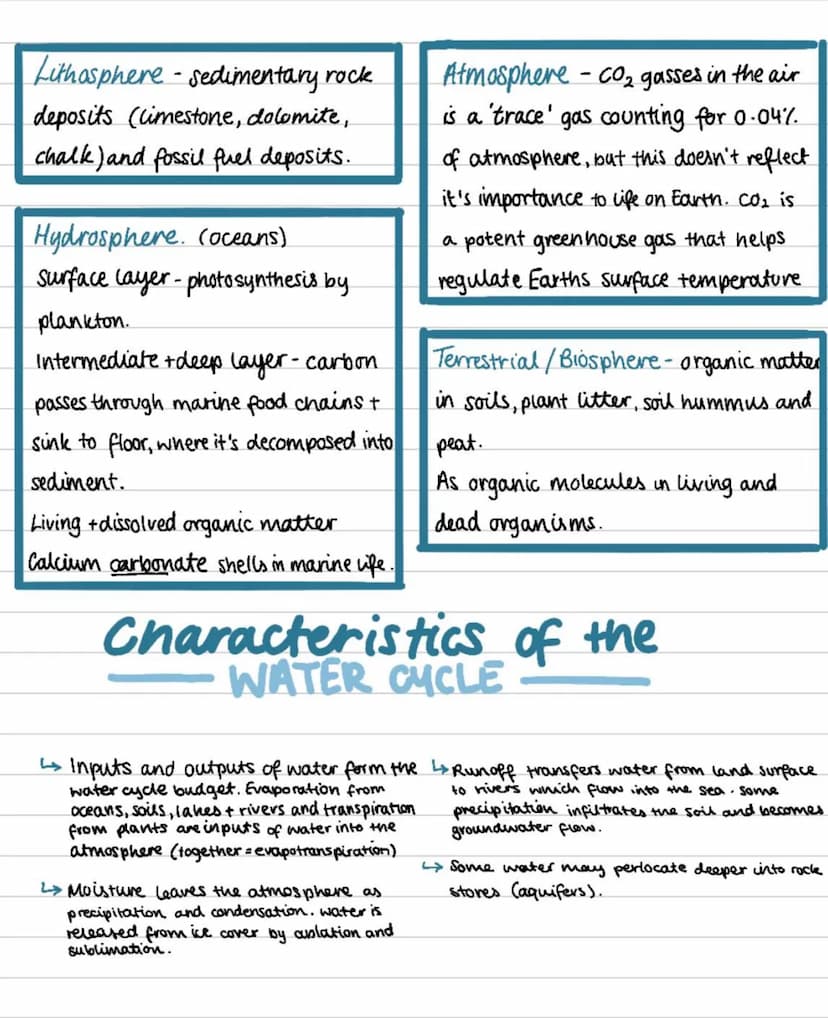 Lithosphere - sedimentary rock
deposits (limestone, dolomite,
chalk) and fossil fuel deposits.
Hydrosphere. (oceans)
Surface layer - photosynthesis by
plankton.
Intermediate + deep layer - carbon
passes through marine food chains +
sink to floor, where it's decomposed into
sediment.
Living + dissolved organic matter
Calcium carbonate shells in marine life.
Atmosphere - CO₂ gasses in the air
is a 'trace' gas counting for 0.04%
of atmosphere, but this doesn't reflect
it's importance to life on Earth. CO₂ is
a potent greenhouse gas that helps
regulate Earths surface temperature
Terrestrial / Biosphere - organic matter
in soils, plant litter, soil hummus and
peat.
As organic molecules in living and
dead organisms.
Characteristics of the
WATER CYCLE
↳ Inputs and outputs of water form the
water cycle budget. Evaporation from
oceans, soils, lakes + rivers and transpiration
from plants are inputs of water into the
atmosphere (together = evapotranspiration)
↳ Moisture leaves the atmosphere as
precipitation and condensation. Water is
released from ice cover by ablation and
sublimation.
↳ Runoff transfers water from land surface
to rivers which flow into the sea. Some
precipitation infiltrates the soil and becomes
groundwater flow.
↳ Some water may perlocate deeper into rock
stores (aquifers).